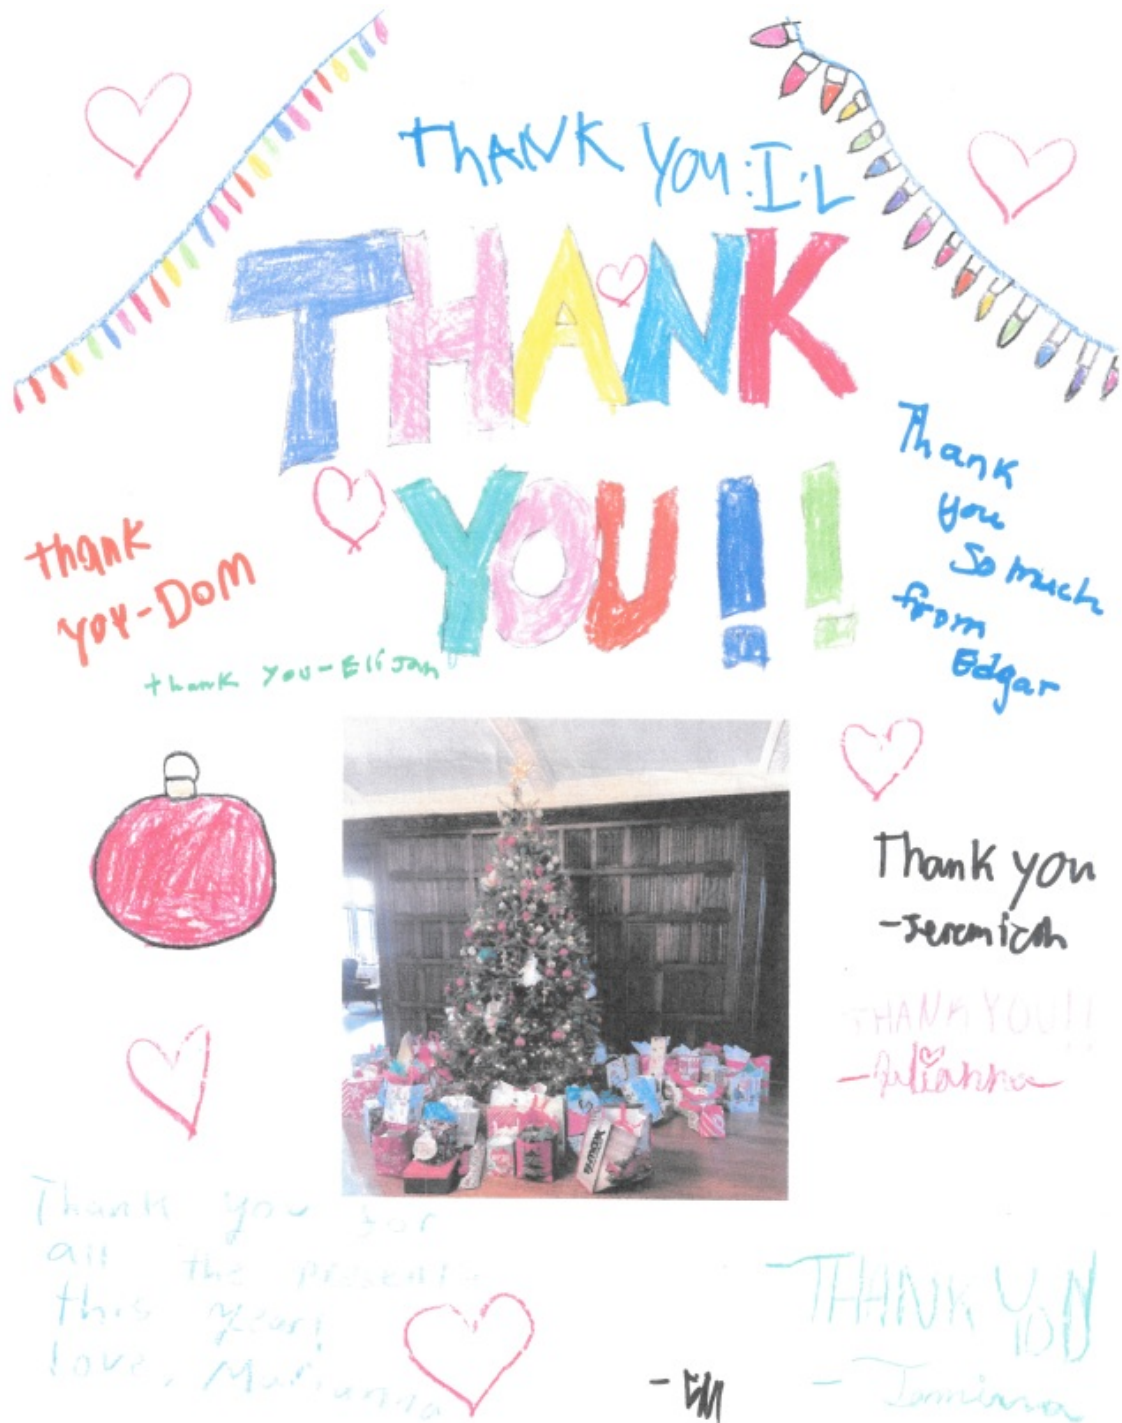 THANK YOU:I.L
THANK
YOU!!
Thank
you
So much
from
Edgar
thank
you-DOM
thank you-Elijah
Thank you
-Jeremiah
THANK YOU!!
-Julianna
Thank you for
all the presents
this year!
Love, Marianna
THANK YOU
-
- EM